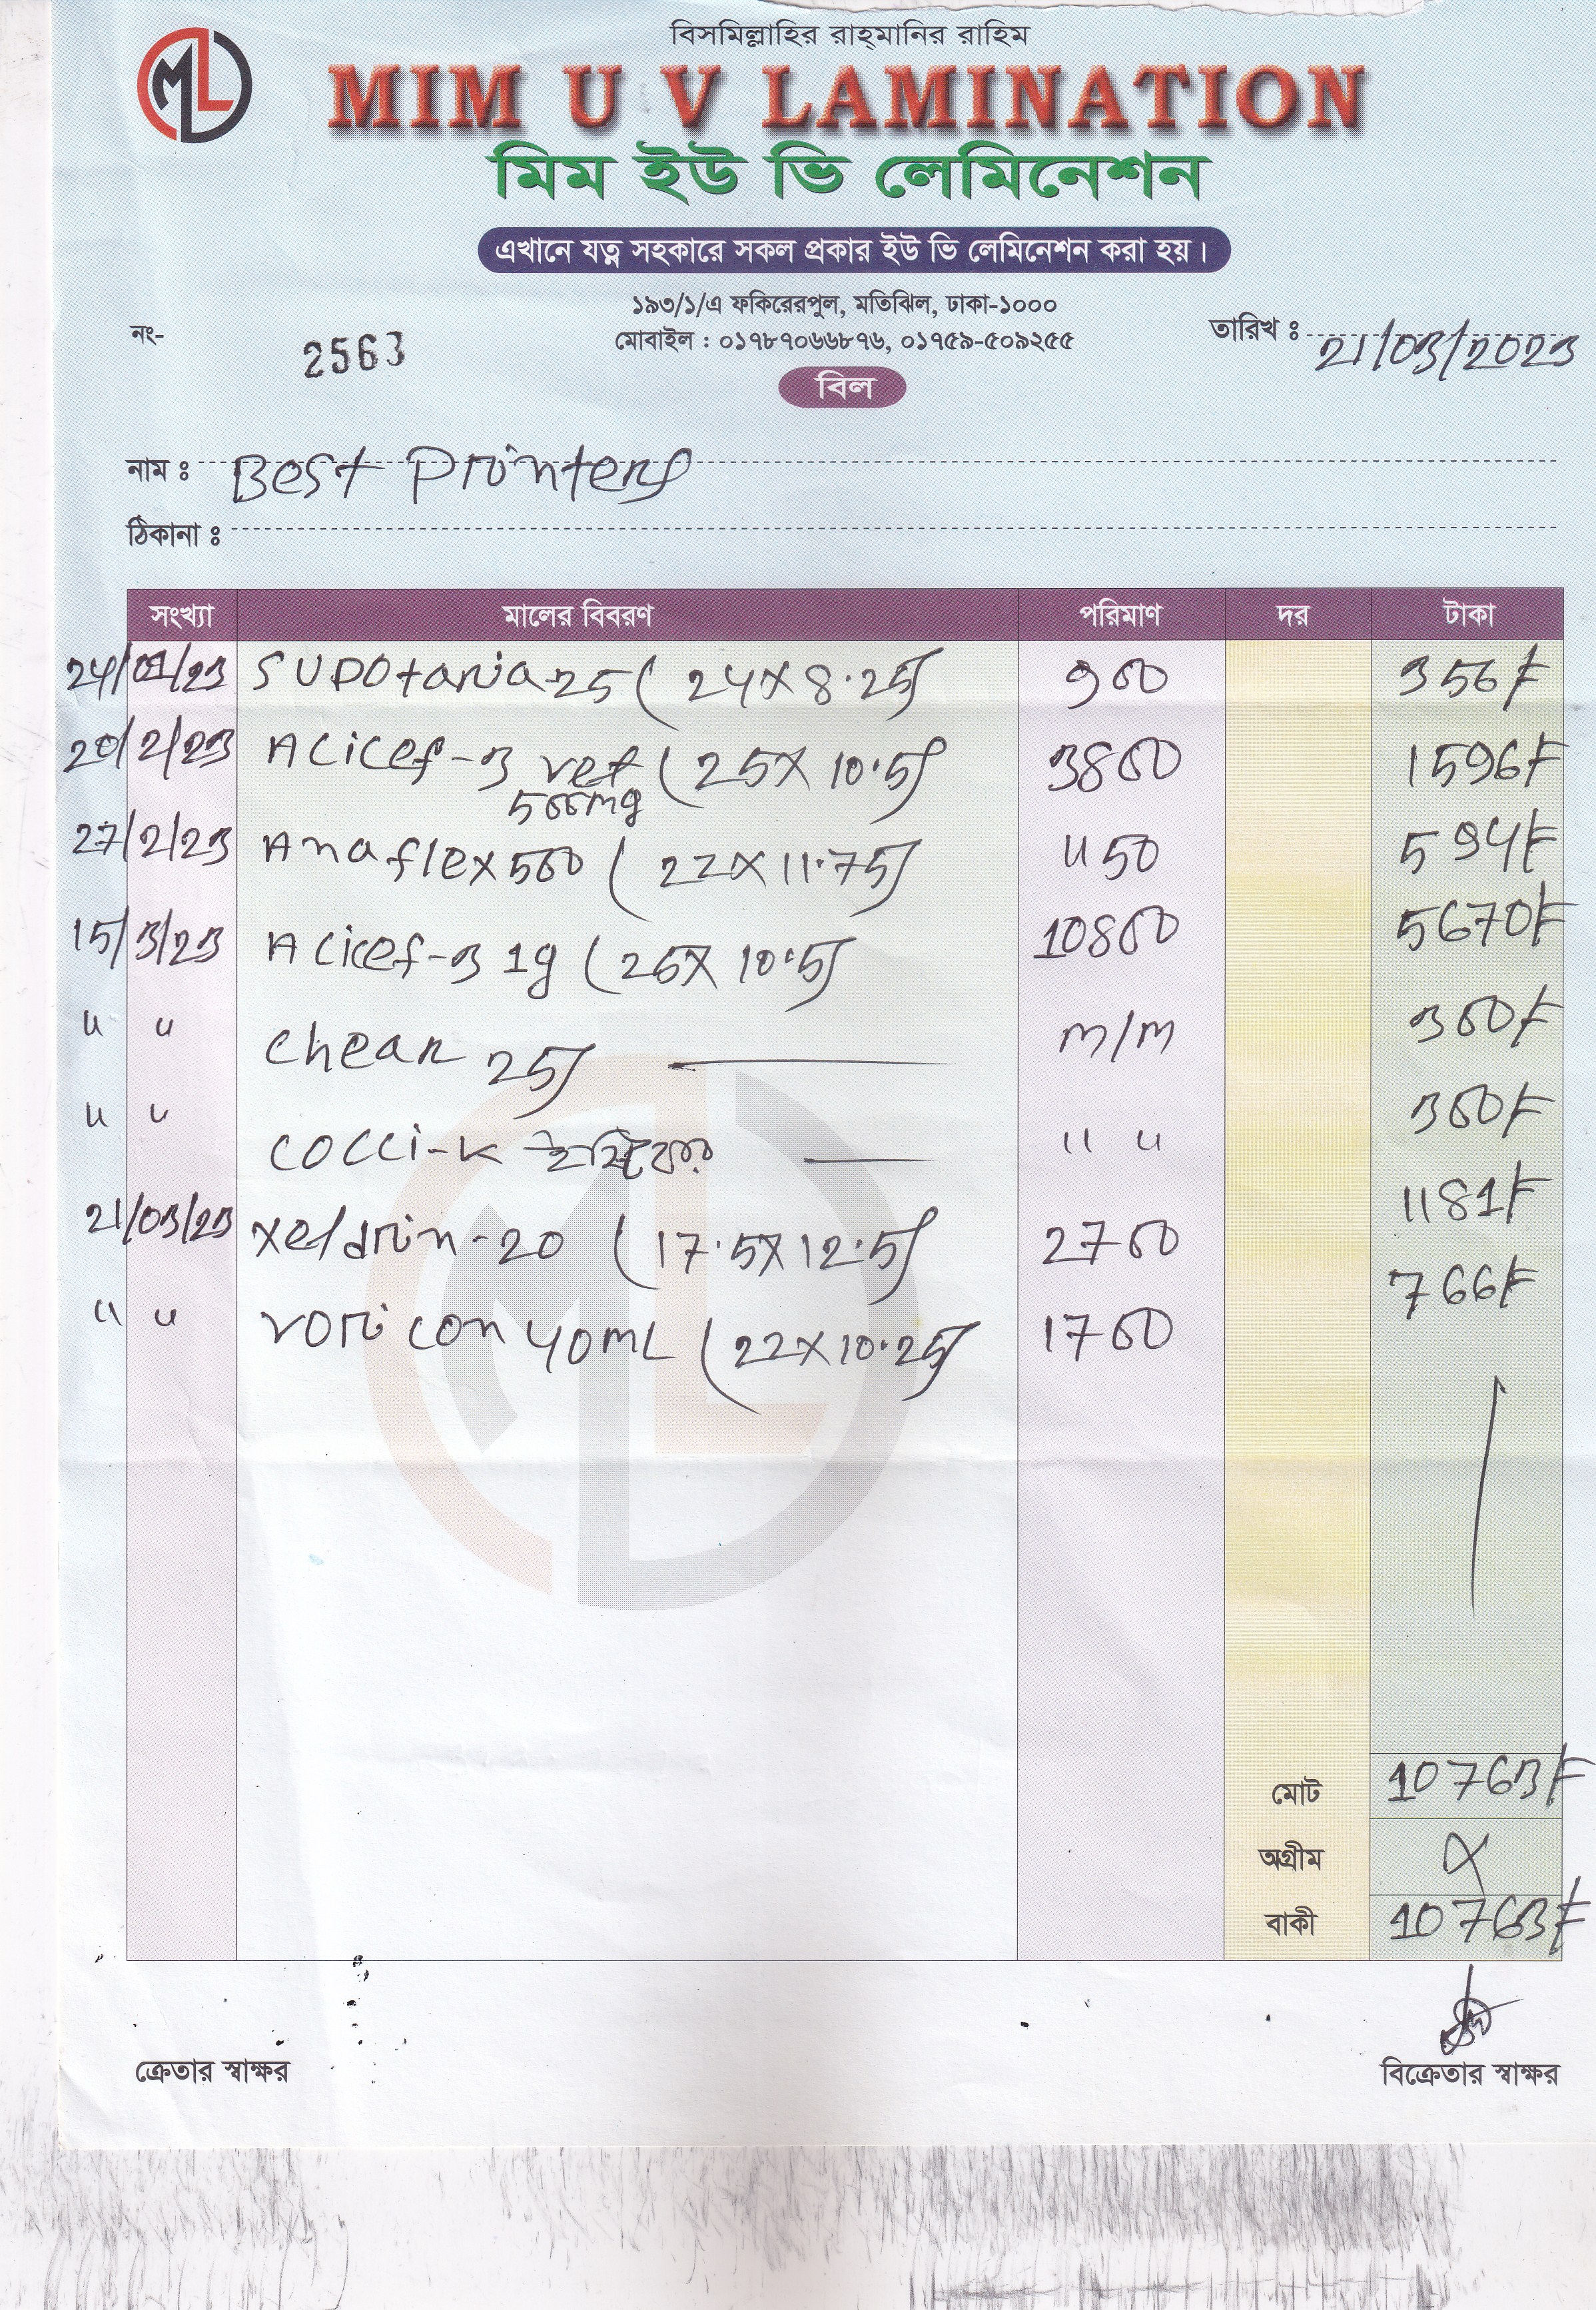 বিসমিল্লাহির রাহ্মানির রাহিম
ML
MIM U V LAMINATION
মিম ইউ ভি লেমিনেশন
এখানে যত্ন সহকারে সকল প্রকার ইউ ভি লেমিনেশন করা হয়।
১৯৩/১/এ ফকিরেরপুল, মতিঝিল, ঢাকা-১০০০
নং- 2563 মোবাইল : ০১৭৮৭০৬৬৮৭৬, ০১৭৫৯-৫০৯২৫৫ তারিখ : 21/03/2023
বিল
নাম : Best Printers
ঠিকানা :
সংখ্যা মালের বিবরণ পরিমাণ দর টাকা
24/01/23 SUDOtaria-25 (24X8.25) 900 356/=
20/2/23 Acicef-3 vet (25X10.5) 3800 1596/=
500mg
27/2/23 Anaflex 500 (22X11.75) 1150 594/=
15/3/23 Acicef-3 1g (25X10.5) 10800 5670/=
" " Chear 25) — m/m 300/=
" " COCCi-K — " " 300/=
21/03/23 Xeldrin-20 (17.5X12.5) 2700 1181/=
" " Voricon 40mL (22X10.25) 1700 766/=
মোট 10763/=
অগ্রীম X
বাকী 10763/=
ক্রেতার স্বাক্ষর বিক্রেতার স্বাক্ষর